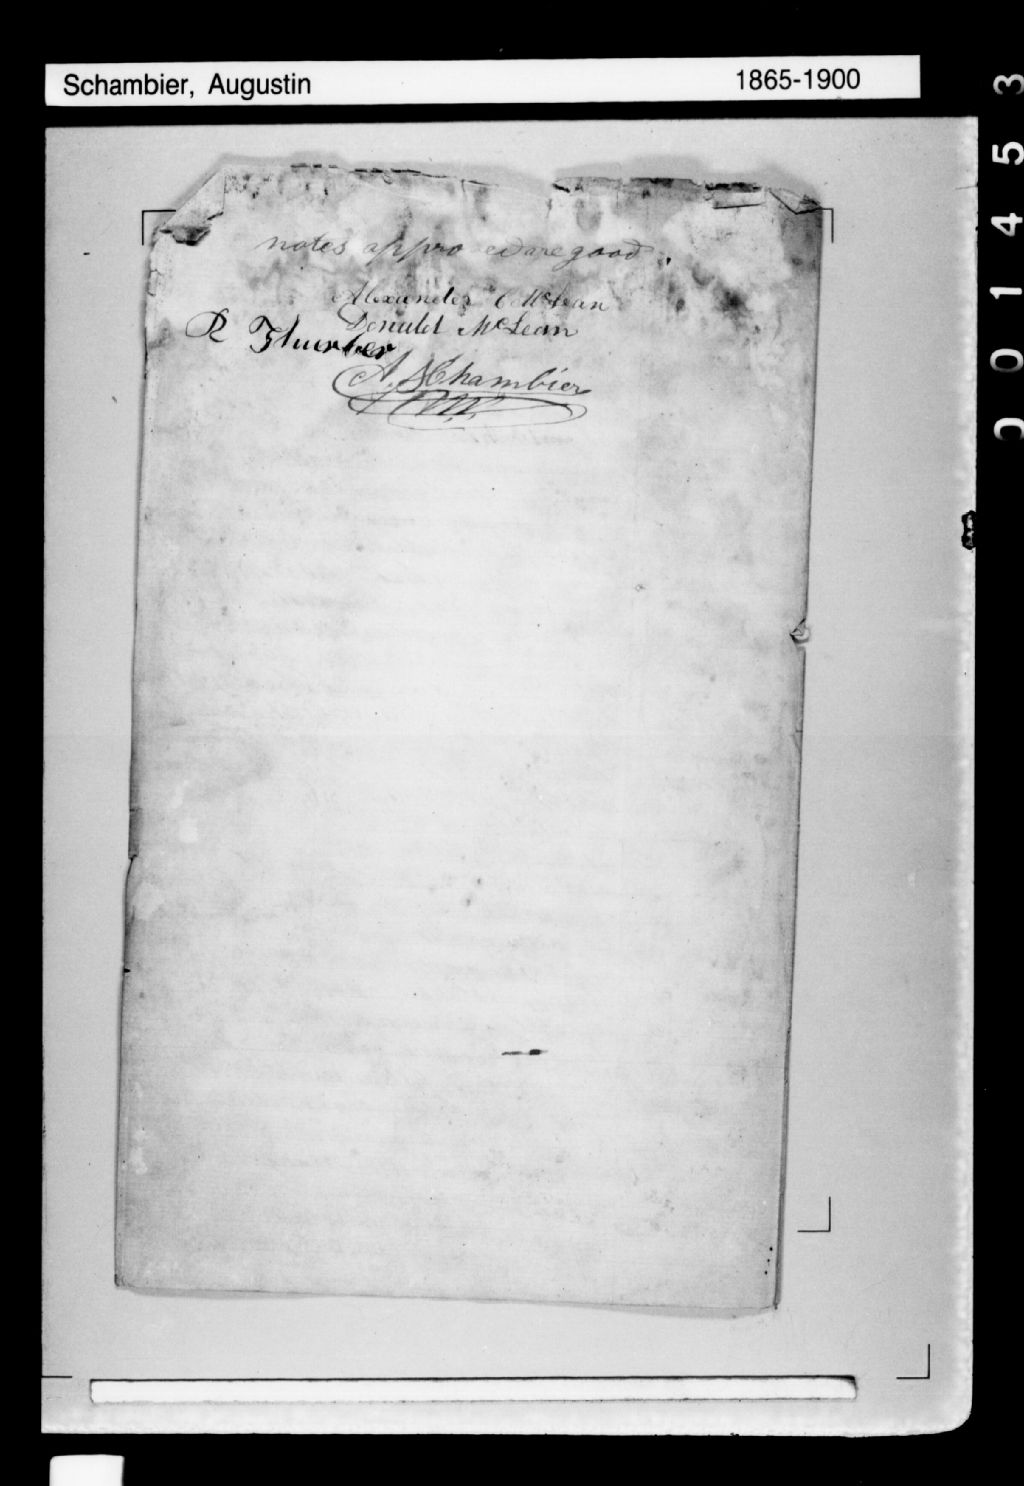 Schambier, Augustin 1865-1900
notes appro edare good.
Alexander C McLean
Donald McLean
R Thurber
A. SChambier
N.P.
001453